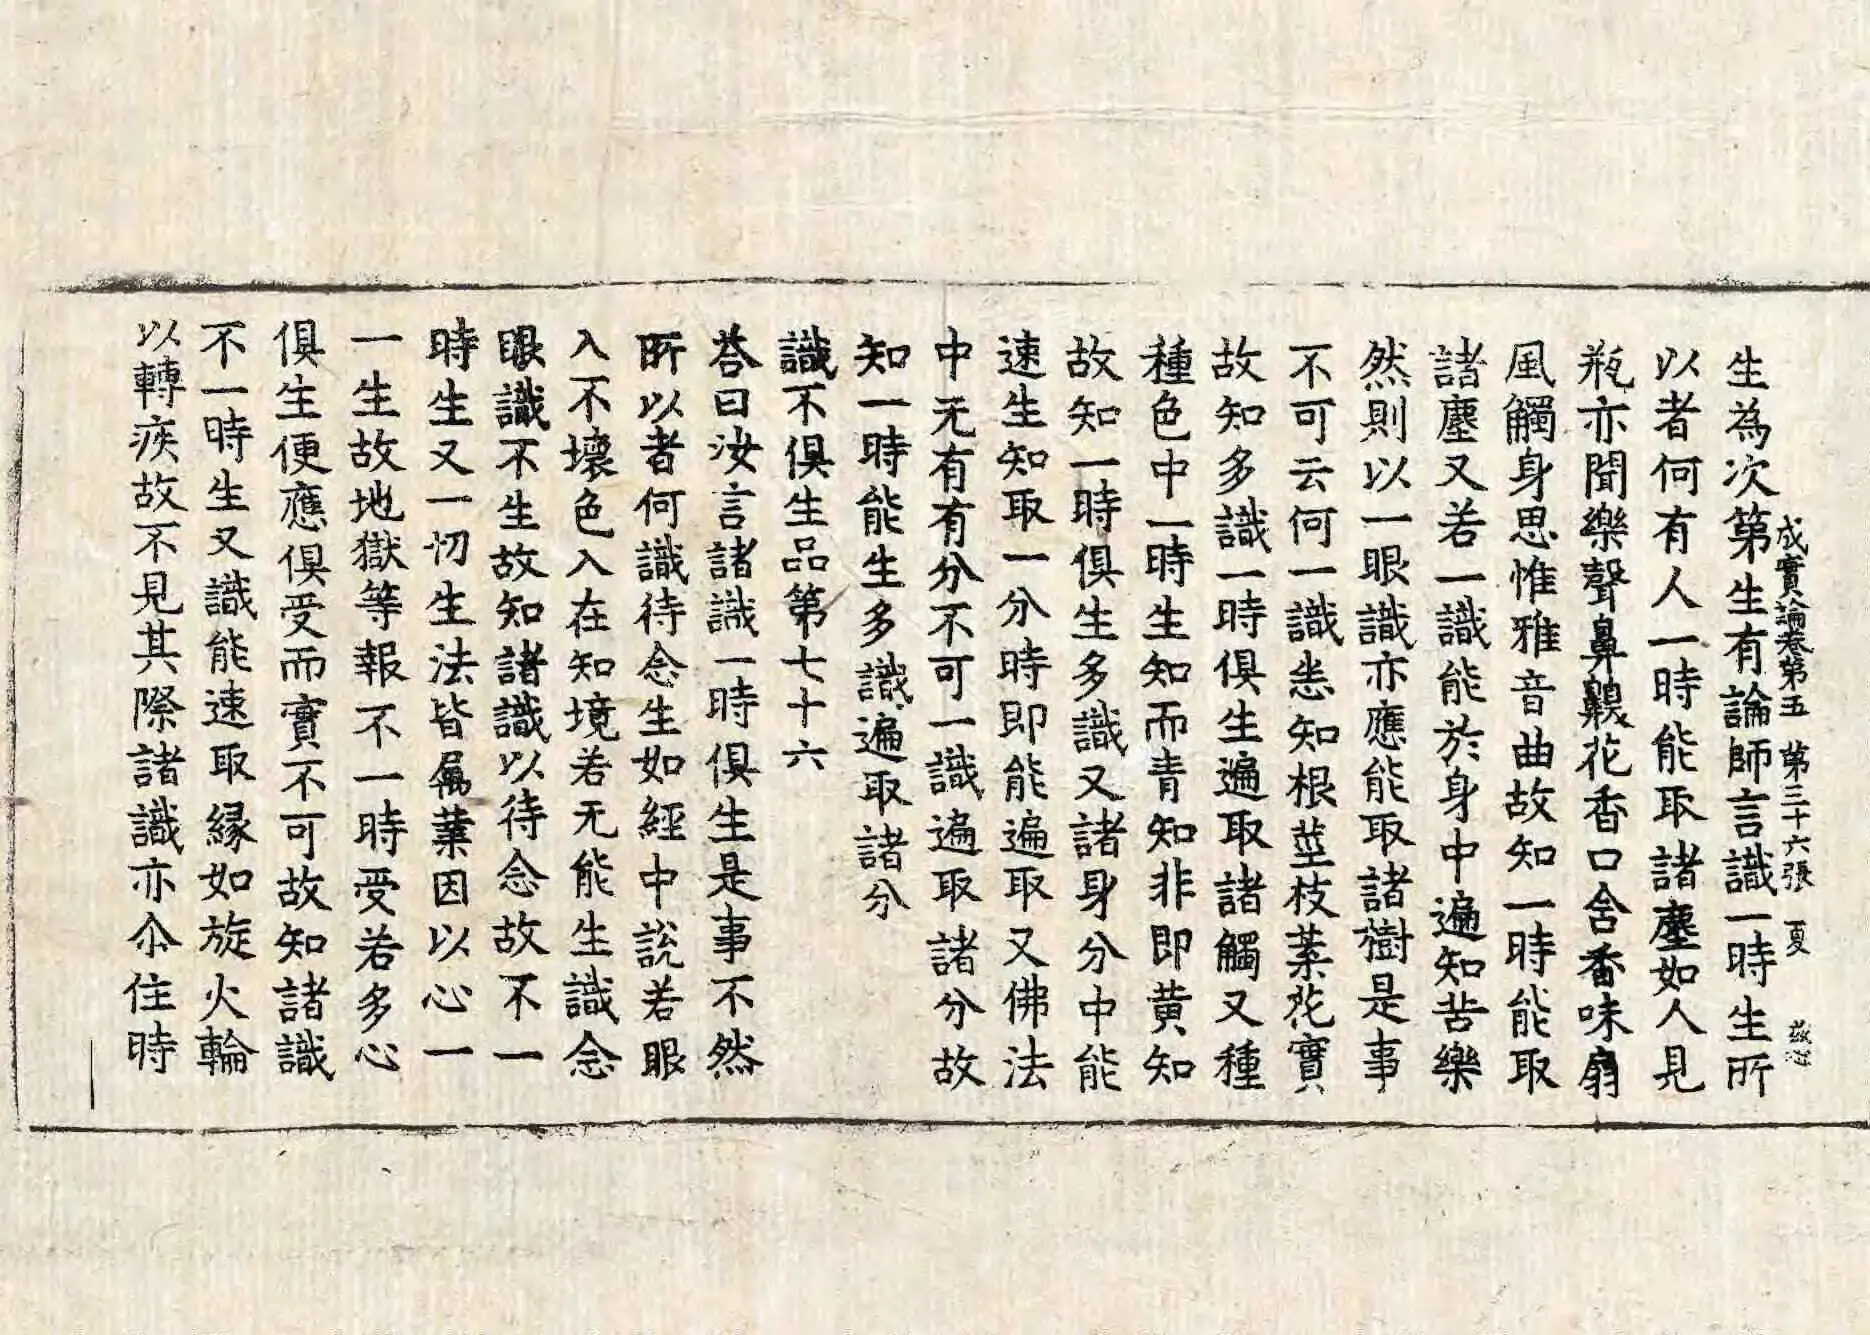 成實論卷第五 第三十六張 夏
生為次第生有論師言識一時生所
以者何有人一時能取諸塵如人見
瓶亦聞樂聲鼻齅花香口含香味扇
風觸身思惟雅音曲故知一時能取
諸塵又若一識能於身中遍知苦樂
然則以一眼識亦應能取諸樹是事
不可云何一識悉知根莖枝葉花實
故知多識一時俱生遍取諸觸又種
種色中一時生知而青知非即黃知
故知一時俱生多識又諸身分中能
速生知取一分時即能遍取又佛法
中无有有分不可一識遍取諸分故
知一時能生多識遍取諸分
識不俱生品第七十六
荅曰汝言諸識一時俱生是事不然
所以者何識待念生如經中說若眼
入不壞色入在知境若无能生識念
眼識不生故知諸識以待念故不一
時生又一切生法皆屬業因以心一
一生故地獄等報不一時受若多心
俱生便應俱受而實不可故知諸識
不一時生又識能速取緣如旋火輪
以轉疾故不見其際諸識亦尒住時